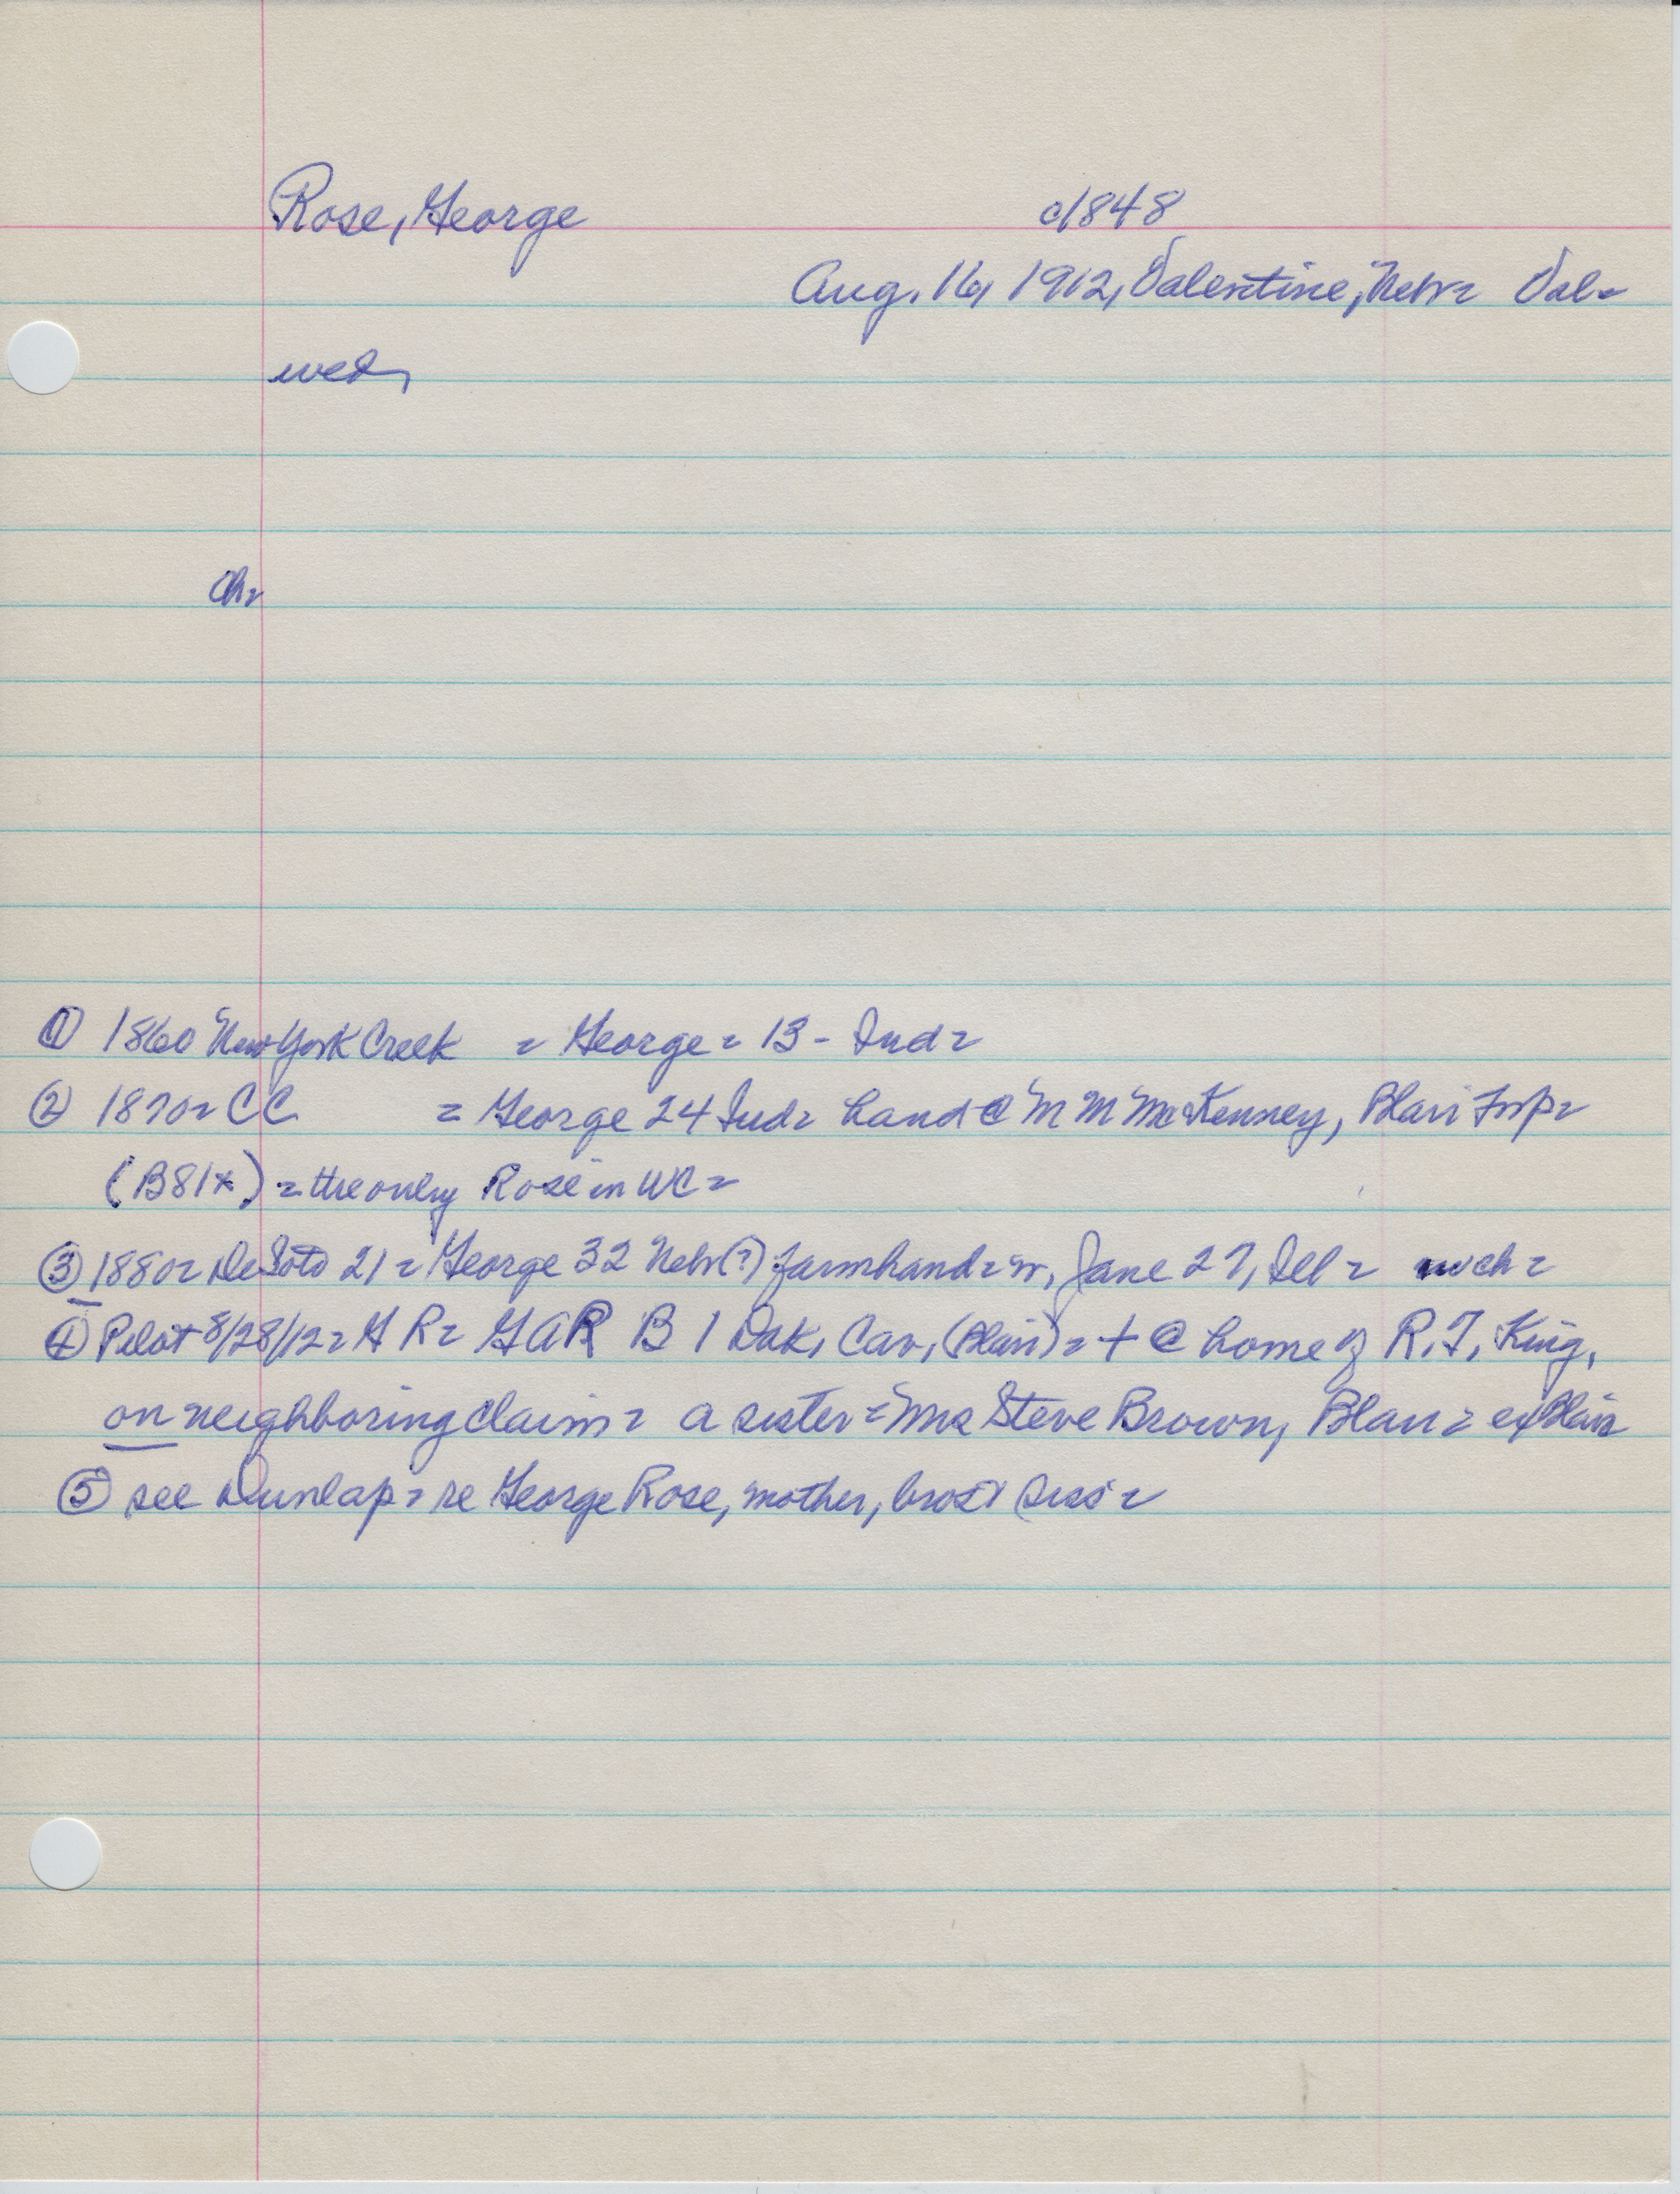 Rose, George c1848
Aug. 16, 1912, Valentine, Nebr= Val=
wed,
Ch=
① 1860 New York Creek = George = 13 - Ind=
② 1870= CC = George 24 Ind= hand @ M M McKenney, Blair Twp=
(B81*) = the only Rose in WC=
③ 1880= DeSoto 21 = George 32 Nebr(?) farmhand= w, Jane 27, Ill= nvch=
④ Pilot 8/28/12= G R= GAR B 1 Dak, Cav, (Blair)= + @ home of R.T. King,
on neighboring claim= a sister = Mrs Steve Brown, Blair= exBlair
⑤ see Dunlap= re George Rose, mother, bros & siss=